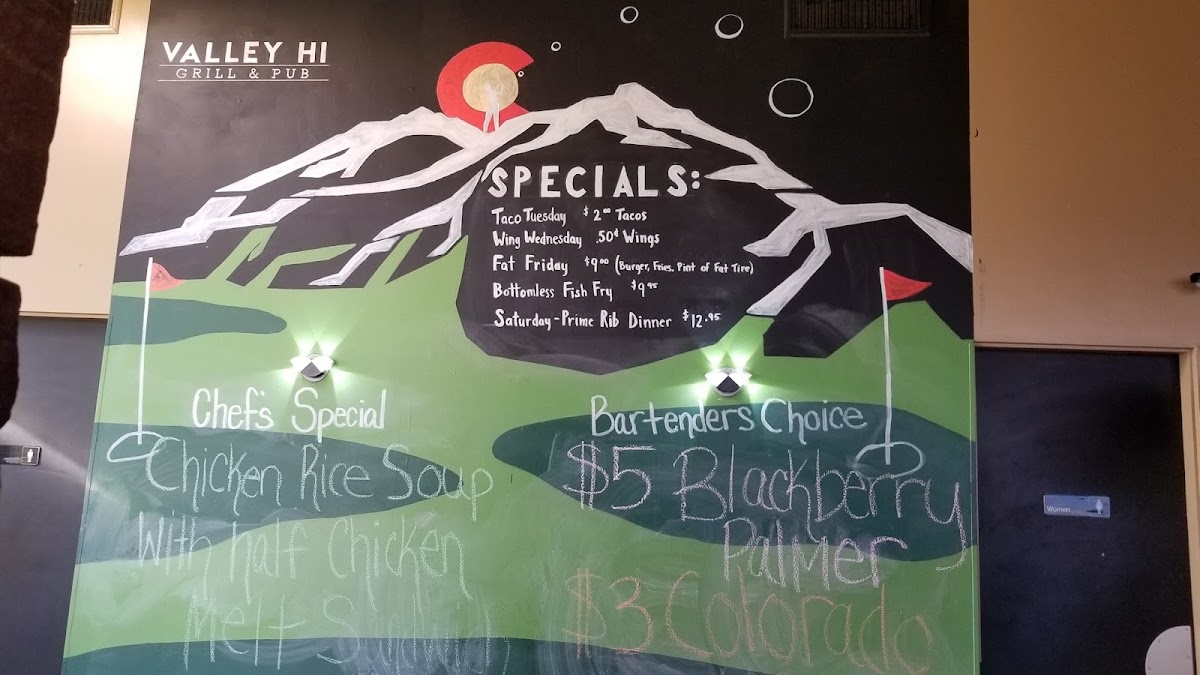 VALLEY HI
GRILL & PUB
SPECIALS:
Taco Tuesday $2.00 Tacos
Wing Wednesday .50¢ Wings
Fat Friday $9.00 (Burger, Fries, Pint of Fat Tire)
Bottomless Fish Fry $9.95
Saturday - Prime Rib Dinner $12.95
Chef's Special
Chicken Rice Soup
With half Chicken
Melt Sandwich
Bartenders Choice
$5 Blackberry
Palmer
$3 Colorado
Women